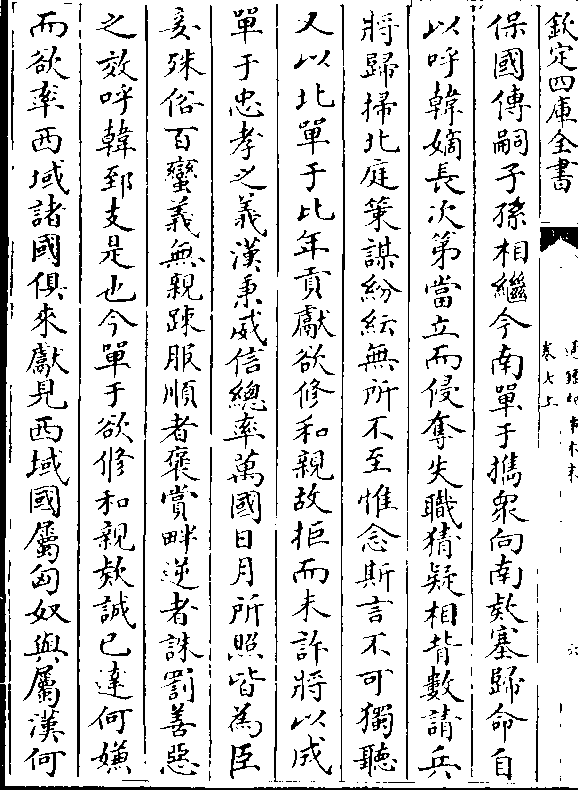 欽定四庫全書
卷七上
保國傳嗣子孫相繼今南單于擕衆向南欵塞歸命自
以呼韓嫡長次第當立而侵奪失職猜疑相背數請兵
將歸掃北庭策謀紛紜無所不至惟念斯言不可獨聽
又以北單于比年貢獻欲修和親故拒而未許將以成
單于忠孝之義漢秉威信總率萬國日月所照皆為臣
妾殊俗百蠻義無親疎服順者褒賞畔逆者誅罰善惡
之效呼韓郅支是也今單于欲修和親欵誠已達何嫌
而欲率西域諸國俱來獻見西域國屬匈奴與屬漢何